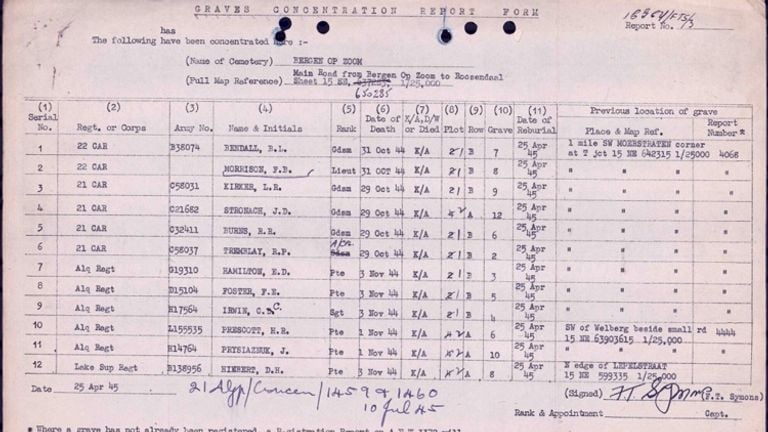 GRAVES CONCENTRATION REPORT FORM
Report No. 73
has
The following have been concentrated here :-
(Name of Cemetery) BERGEN OP ZOOM
Main Road from Bergen Op Zoom to Roosendaal
(Full Map Reference) Sheet 15 NE, 1/25,000
650285
(1) Serial No. (2) Regt. or Corps (3) Army No. (4) Name & Initials (5) Rank (6) Date of Death (7) K/A,D/W or Died (8) Plot (9) Row (10) Grave (11) Date of Reburial Previous location of grave Place & Map Ref. Report Number *
1 22 CAR B38074 BENDALL, R.L. Gdsm 31 Oct 44 K/A 2 B 7 25 Apr 45 1 mile SW MOERSTRATEN corner at T jct 15 NE 642315 1/25000 4068
2 22 CAR MORRISON, F.B. Lieut 31 OCT 44 K/A 2 B 8 25 Apr 45 " " " "
3 21 CAR C58031 KIRKER, L.R. Gdsm 29 Oct 44 K/A 2 B 9 25 Apr 45 " " " "
4 21 CAR C21682 STRONACH, J.D. Gdsm 29 Oct 44 K/A 2 A 12 25 Apr 45 " " " "
5 21 CAR C32411 BURNS, R.R. Gdsm 29 Oct 44 K/A 2 B 6 25 Apr 45 " " " "
6 21 CAR C58037 TREMBLAY, R.P. 29 Oct 44 K/A 2 B 2 25 Apr 45 " " " "
7 Alq Regt G19310 HAMILTON, E.D. Pte 3 Nov 44 K/A 2 B 3 25 Apr 45 " " " "
8 Alq Regt D15104 FOSTER, F.E. Pte 3 Nov 44 K/A 2 B 5 25 Apr 45 " " " "
9 Alq Regt H17564 IRWIN, C.C. Sgt 3 Nov 44 K/A 2 B 4 25 Apr 45 " " " "
10 Alq Regt L155535 PRESCOTT, H.R. Pte 1 Nov 44 K/A 2 A 6 25 Apr 45 SW of Welberg beside small rd 15 NE 63903615 1/25,000 4444
11 Alq Regt H14764 PRYSIAZNUK, J. Pte 1 Nov 44 K/A 2 A 10 25 Apr 45 " " " "
12 Lake Sup Regt B138956 HIEBERT, D.H. Pte 1 Nov 44 K/A 2 A 8 25 Apr 45 N edge of LEPELSTRAAT 15 NE 599335 1/25,000
Date 25 Apr 45
1459 & 1460
10 Jul 45
(Signed) F T Symons (F.T. Symons)
Rank & Appointment Capt.
* Where a grave has not already been registered, a Registration Report on